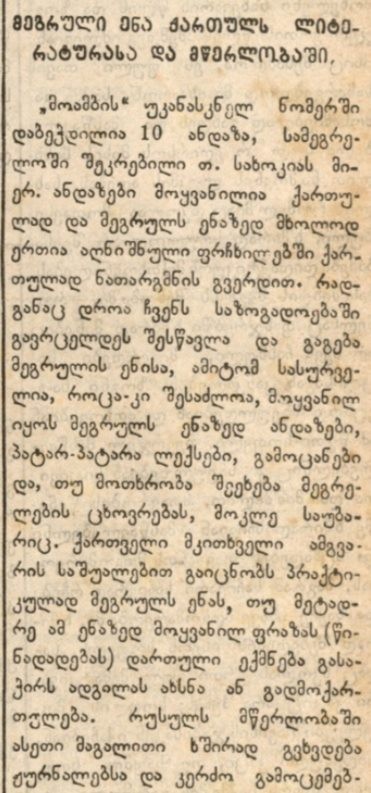 მეგრული ენა ქართულს ლიტე-
რატურასა და მწერლობაში.
„მოამბის“ უკანასკნელ ნომერში
დაბეჭდილია 10 ანდაზა, სამეგრე-
ლოში შეკრებილი თ. სახოკიას მი-
ერ. ანდაზები მოყვანილია ქართუ-
ლად და მეგრულს ენაზედ მხოლოდ
ერთია აღნიშნული ფრჩხილებში ქარ-
თულად ნათარგმნის გვერდით. რად-
განაც დროა ჩვენს საზოგადოებაში
გავრცელდეს შესწავლა და გაგება
მეგრულის ენისა, ამიტომ სასურვე-
ლია, როცა-კი შესაძლოა, მოყვანილ
იყოს მეგრულს ენაზედ ანდაზები,
პატარ-პატარა ლექსები, გამოცანები
და, თუ მოთხრობა შეეხება მეგრე-
ლების ცხოვრებას, მოკლე საუბა-
რიც. ქართველი მკითხველი ამგვა-
რის საშუალებით გაიცნობს პრაქტი-
კულად მეგრულს ენას, თუ მეტად-
რე ამ ენაზედ მოყვანილ ფრაზას (წი-
ნადადებას) დართული ექმნება გასა-
ჭირს ადგილას ახსნა ან გადმოქარ-
თულება. რუსულს მწერლობაში
ასეთი მაგალითი ხშირად გვხვდება
ჟურნალებსა და კერძო გამოცემებ-